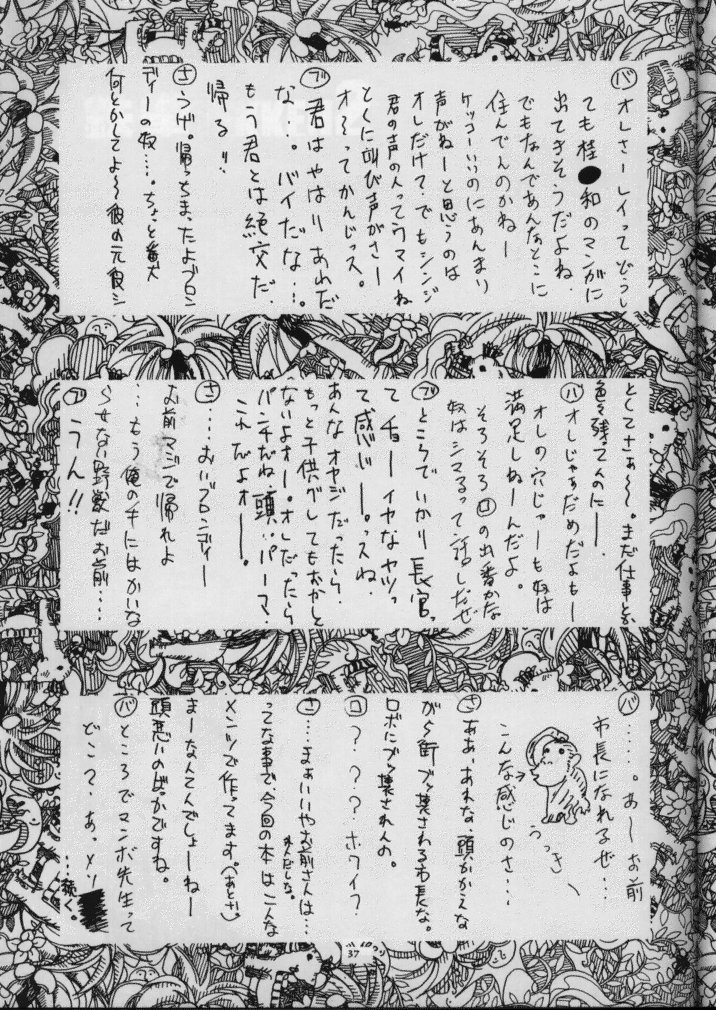 バ オレさーレイってどうし
ても桂●和のマンガに
出てきそうだよね.
でもなんであんなとこに
住んでんのかねー
ケッコーいいのにあんまり
声がねーと思うのは
オレだけ?でもシンジ
君の声の人ってウマイね
とくに叫び声がさー
オ〜ってかんじっス。
ブ 君はやはりあれだ
な…。バイだな…。
もう君とは絶交だ.
帰る!!
さ うげ。帰っちまったよブロン
ディーの奴……。ちょと番犬
何とかしてよ〜彼の元彼シ
としてさぁ〜〜。まだ仕事とか
色々残ってんのにー.
バ オレじゃぁだめだよもー
オレの穴じゃーも奴は
満足しねーんだよ。
そろそろロの出番かな
奴はシマるって話しだぜ
ブ ところでいかり長官っ
てチョーイヤなヤツっ
て感じー。っスね.
あんなオヤジだったら.
もっと子供グレてもおかしと
ないよオー。オレだったら
パンチだね.頭.パーマ.
これだよオー。
さ ‥‥おいブロンディー
お前マジで帰れよ
…もう俺の手にはかいな
らせない野獣だお前‥‥
ブ うん!!
バ ……。あーお前
市長になれるぜ…
こんな感じのさ…
うっきー
さ ああ、あれな、頭かかえな
がら街ブッ壊される市長な。
ロボにブッ壊されんの。
ロ ????ホワイ?
さ …まぁいいやお前さんは…
ってな事で今回の本はこんな
メンツで作ってます。(あとさ)
まーなんてんでしょーねー
頭悪いのばっかですね。
バ ところでマンボ先生って
どこ?、あ、メソ
…続く。
37